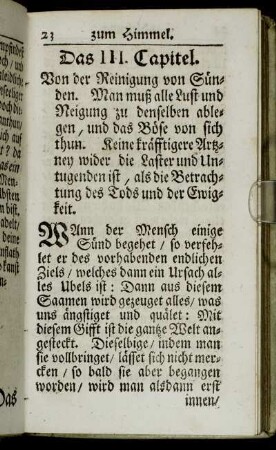 23 zum Himmel.
Das III. Capitel.
Von der Reinigung von Sün-
den. Man muß alle Lust und
Neigung zu denselben able-
gen, und das Böse von sich
thun. Keine kräfftigere Artz-
ney wider die Laster und Un-
tugenden ist, als die Betrach-
tung des Tods und der Ewig-
keit.
WAnn der Mensch einige
Sünd begehet / so verfeh-
let er des vorhabenden endlichen
Ziels / welches dann ein Ursach al-
les Ubels ist: Dann aus diesem
Saamen wird gezeuget alles / was
uns ängstiget und quälet: Mit
diesem Gifft ist die gantze Welt an-
gesteckt. Dieselbige / indem man
sie vollbringet / lässet sich nicht mer-
cken / so bald sie aber begangen
worden / wird man alsdann erst
innen /